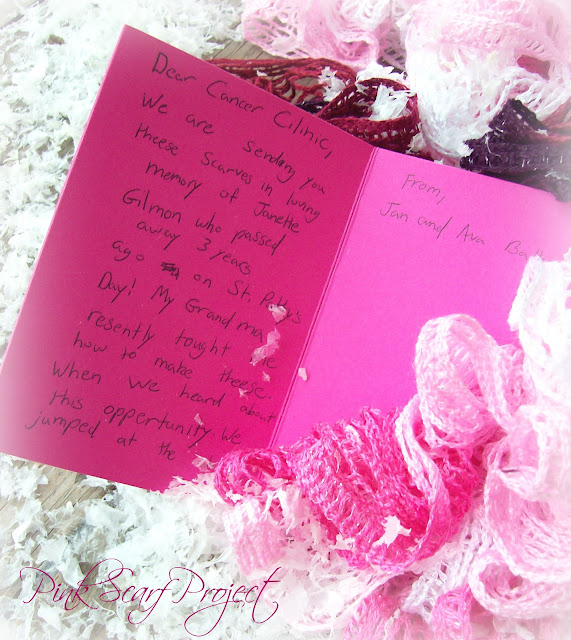 Dear Cancer Cilinic,
We are sending you
theese scarves in loving
memory of Janette
Gilmon who passed
away 3 years
ago on St. Patty's
Day! My Grandma
resently tought me
how to make theese.
When we heard about
this opportunity we
jumped at the
From,
Jan and Ava
Pink Scarf Project